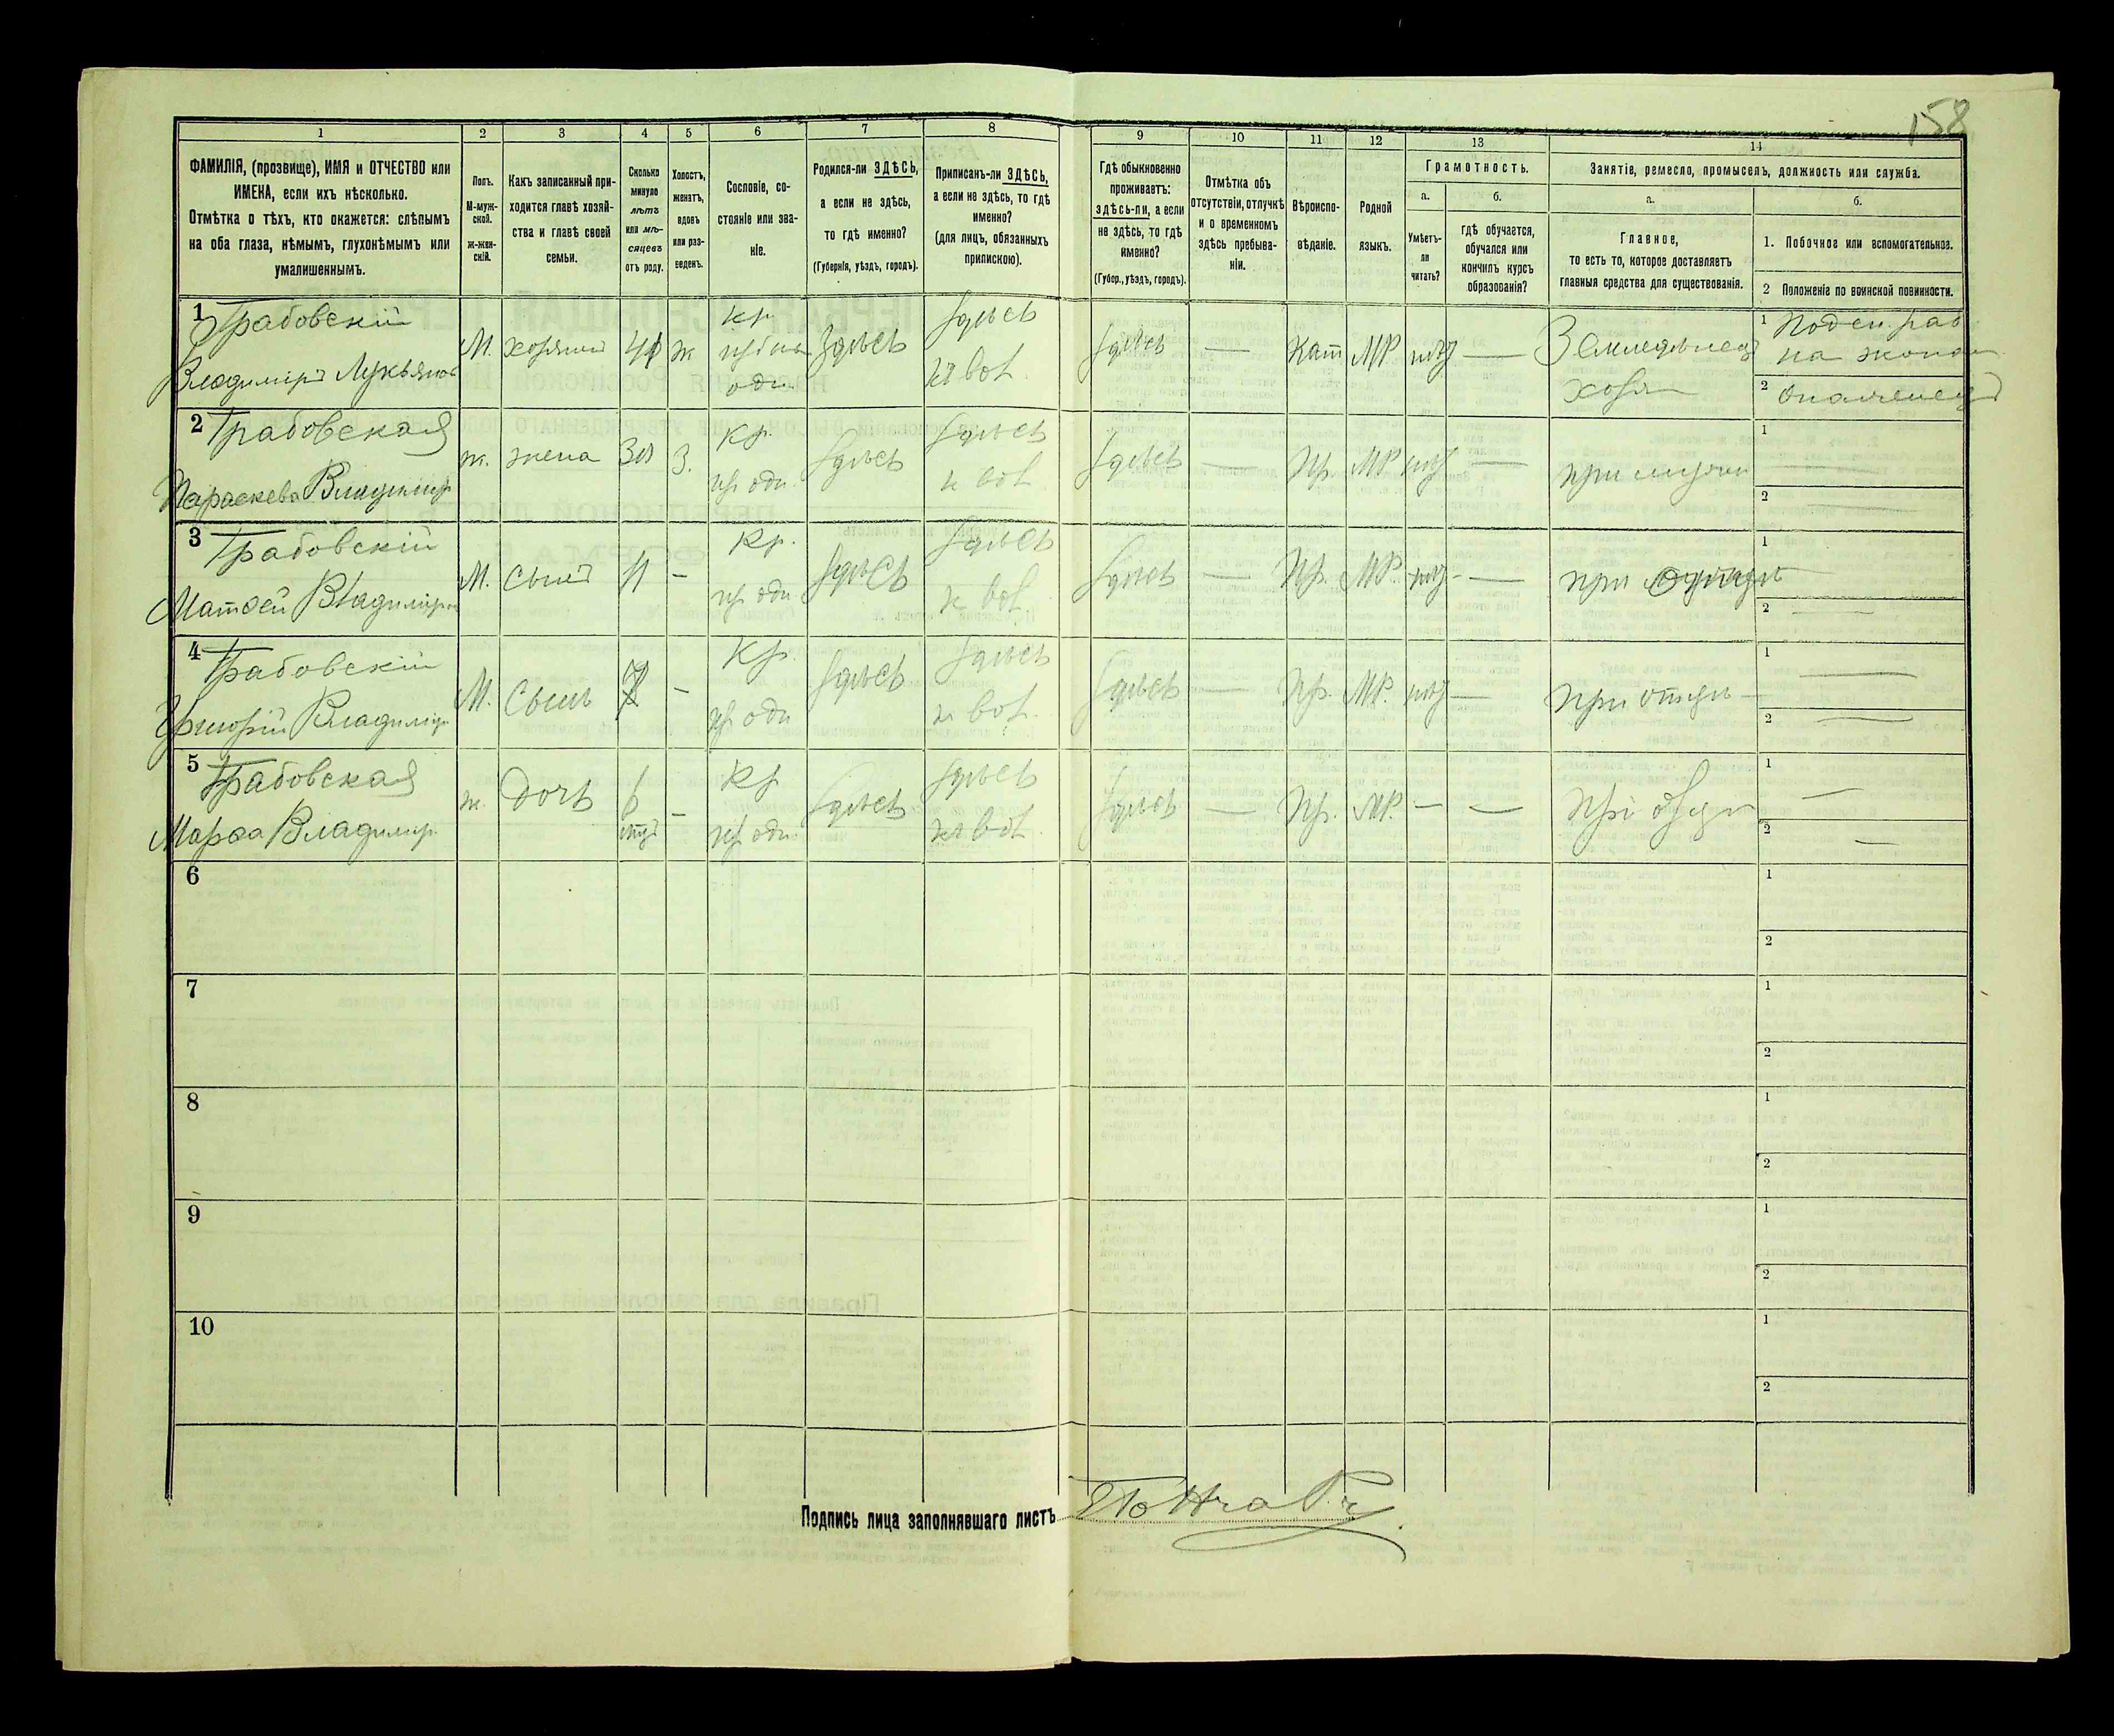 158
1 2 3 4 5 6 7 8 9 10 11 12 13 14
ФАМИЛІЯ, (прозвище), ИМЯ и ОТЧЕСТВО или
ИМЕНА, если ихъ нѣсколько.
Отмѣтка о тѣхъ, кто окажется: слѣпымъ
на оба глаза, нѣмымъ, глухонѣмымъ или
умалишеннымъ.
Полъ.
М-муж-
ской.
ж-жен-
скій.
Какъ записанный при-
ходится главѣ хозяй-
ства и главѣ своей
семьи.
Сколько
минуло
лѣтъ
или мѣ-
сяцевъ
отъ роду.
Холостъ,
женатъ,
вдовъ
или раз-
веденъ.
Сословіе, со-
стояніе или зва-
ніе.
Родился-ли ЗДѢСЬ,
а если не здѣсь,
то гдѣ именно?
(Губернія, уѣздъ, городъ).
Приписанъ-ли ЗДѢСЬ,
а если не здѣсь, то гдѣ
именно?
(для лицъ, обязанныхъ
припискою).
Гдѣ обыкновенно
проживаетъ:
здѣсь-ли, а если
не здѣсь, то гдѣ
именно?
(Губер., уѣздъ, городъ).
Отмѣтка объ
отсутствіи, отлучкѣ
и о временномъ
здѣсь пребыва-
ніи.
Вѣроиспо-
вѣданіе.
Родной
языкъ.
Грамотность.
а.
Умѣетъ-
ли
читать?
б.
гдѣ обучается,
обучался или
кончилъ курсъ
образованія?
Занятіе, ремесло, промыселъ, должность или служба.
а.
Главное,
то есть то, которое доставляетъ
главныя средства для существованія.
б.
1. Побочное или вспомогательное.
2 Положеніе по воинской повинности.
1 Грабовскій
Владиміръ Лукьянов
М. хозяинъ ж Кр. здѣсь здѣсь здѣсь — Кат МР нѣт —
хозя
1
2
2 Грабовская
Параскева Владимір
ж. жена З. Кр. здѣсь здѣсь здѣсь — Пр. МР нѣт — при мужѣ
1
2
3 Грабовскій
Матѳей Владиміров
М. Сынъ 11 - Кр. здѣсь здѣсь здѣсь — Пр. МР. нѣт — при отцѣ
1
2
4 Грабовскій
Григорій Владимір
М. Сынъ 7 - Кр. здѣсь здѣсь здѣсь — Пр. МР. нѣт — при отцѣ
1
2
5 Грабовская
Марѳа Владимір.
ж. дочь - Кр здѣсь здѣсь здѣсь — Пр. МР. — — при отцѣ
1
2
6
1
2
7
1
2
8
1
2
9
1
2
10
1
2
Подпись лица заполнявшаго листъ